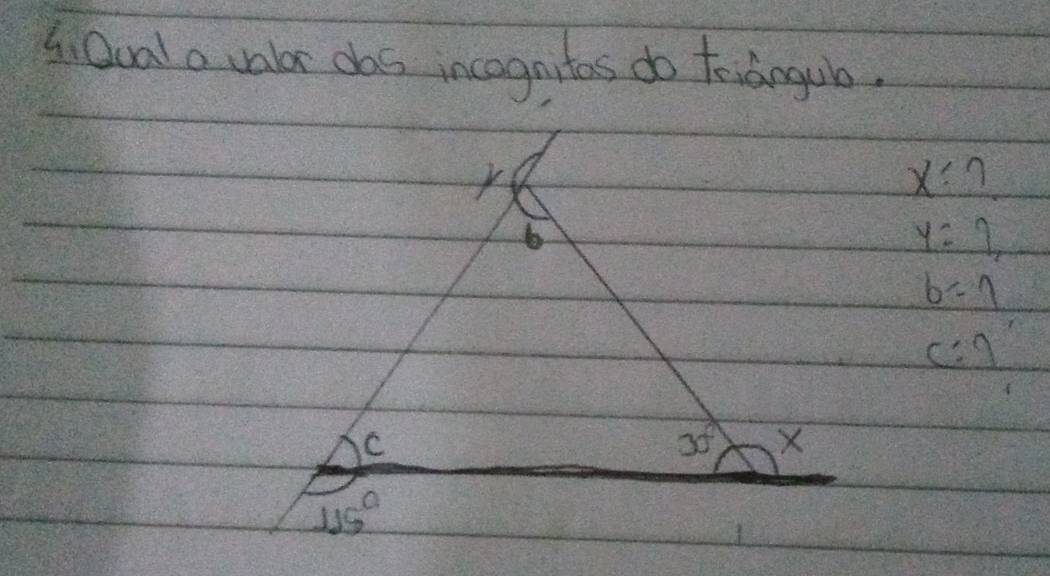 4. Qual o valor das incognitas do triângulo.
Y
x = ?
b
y = ?
b = ?
c = ?
c
30°
x
115°